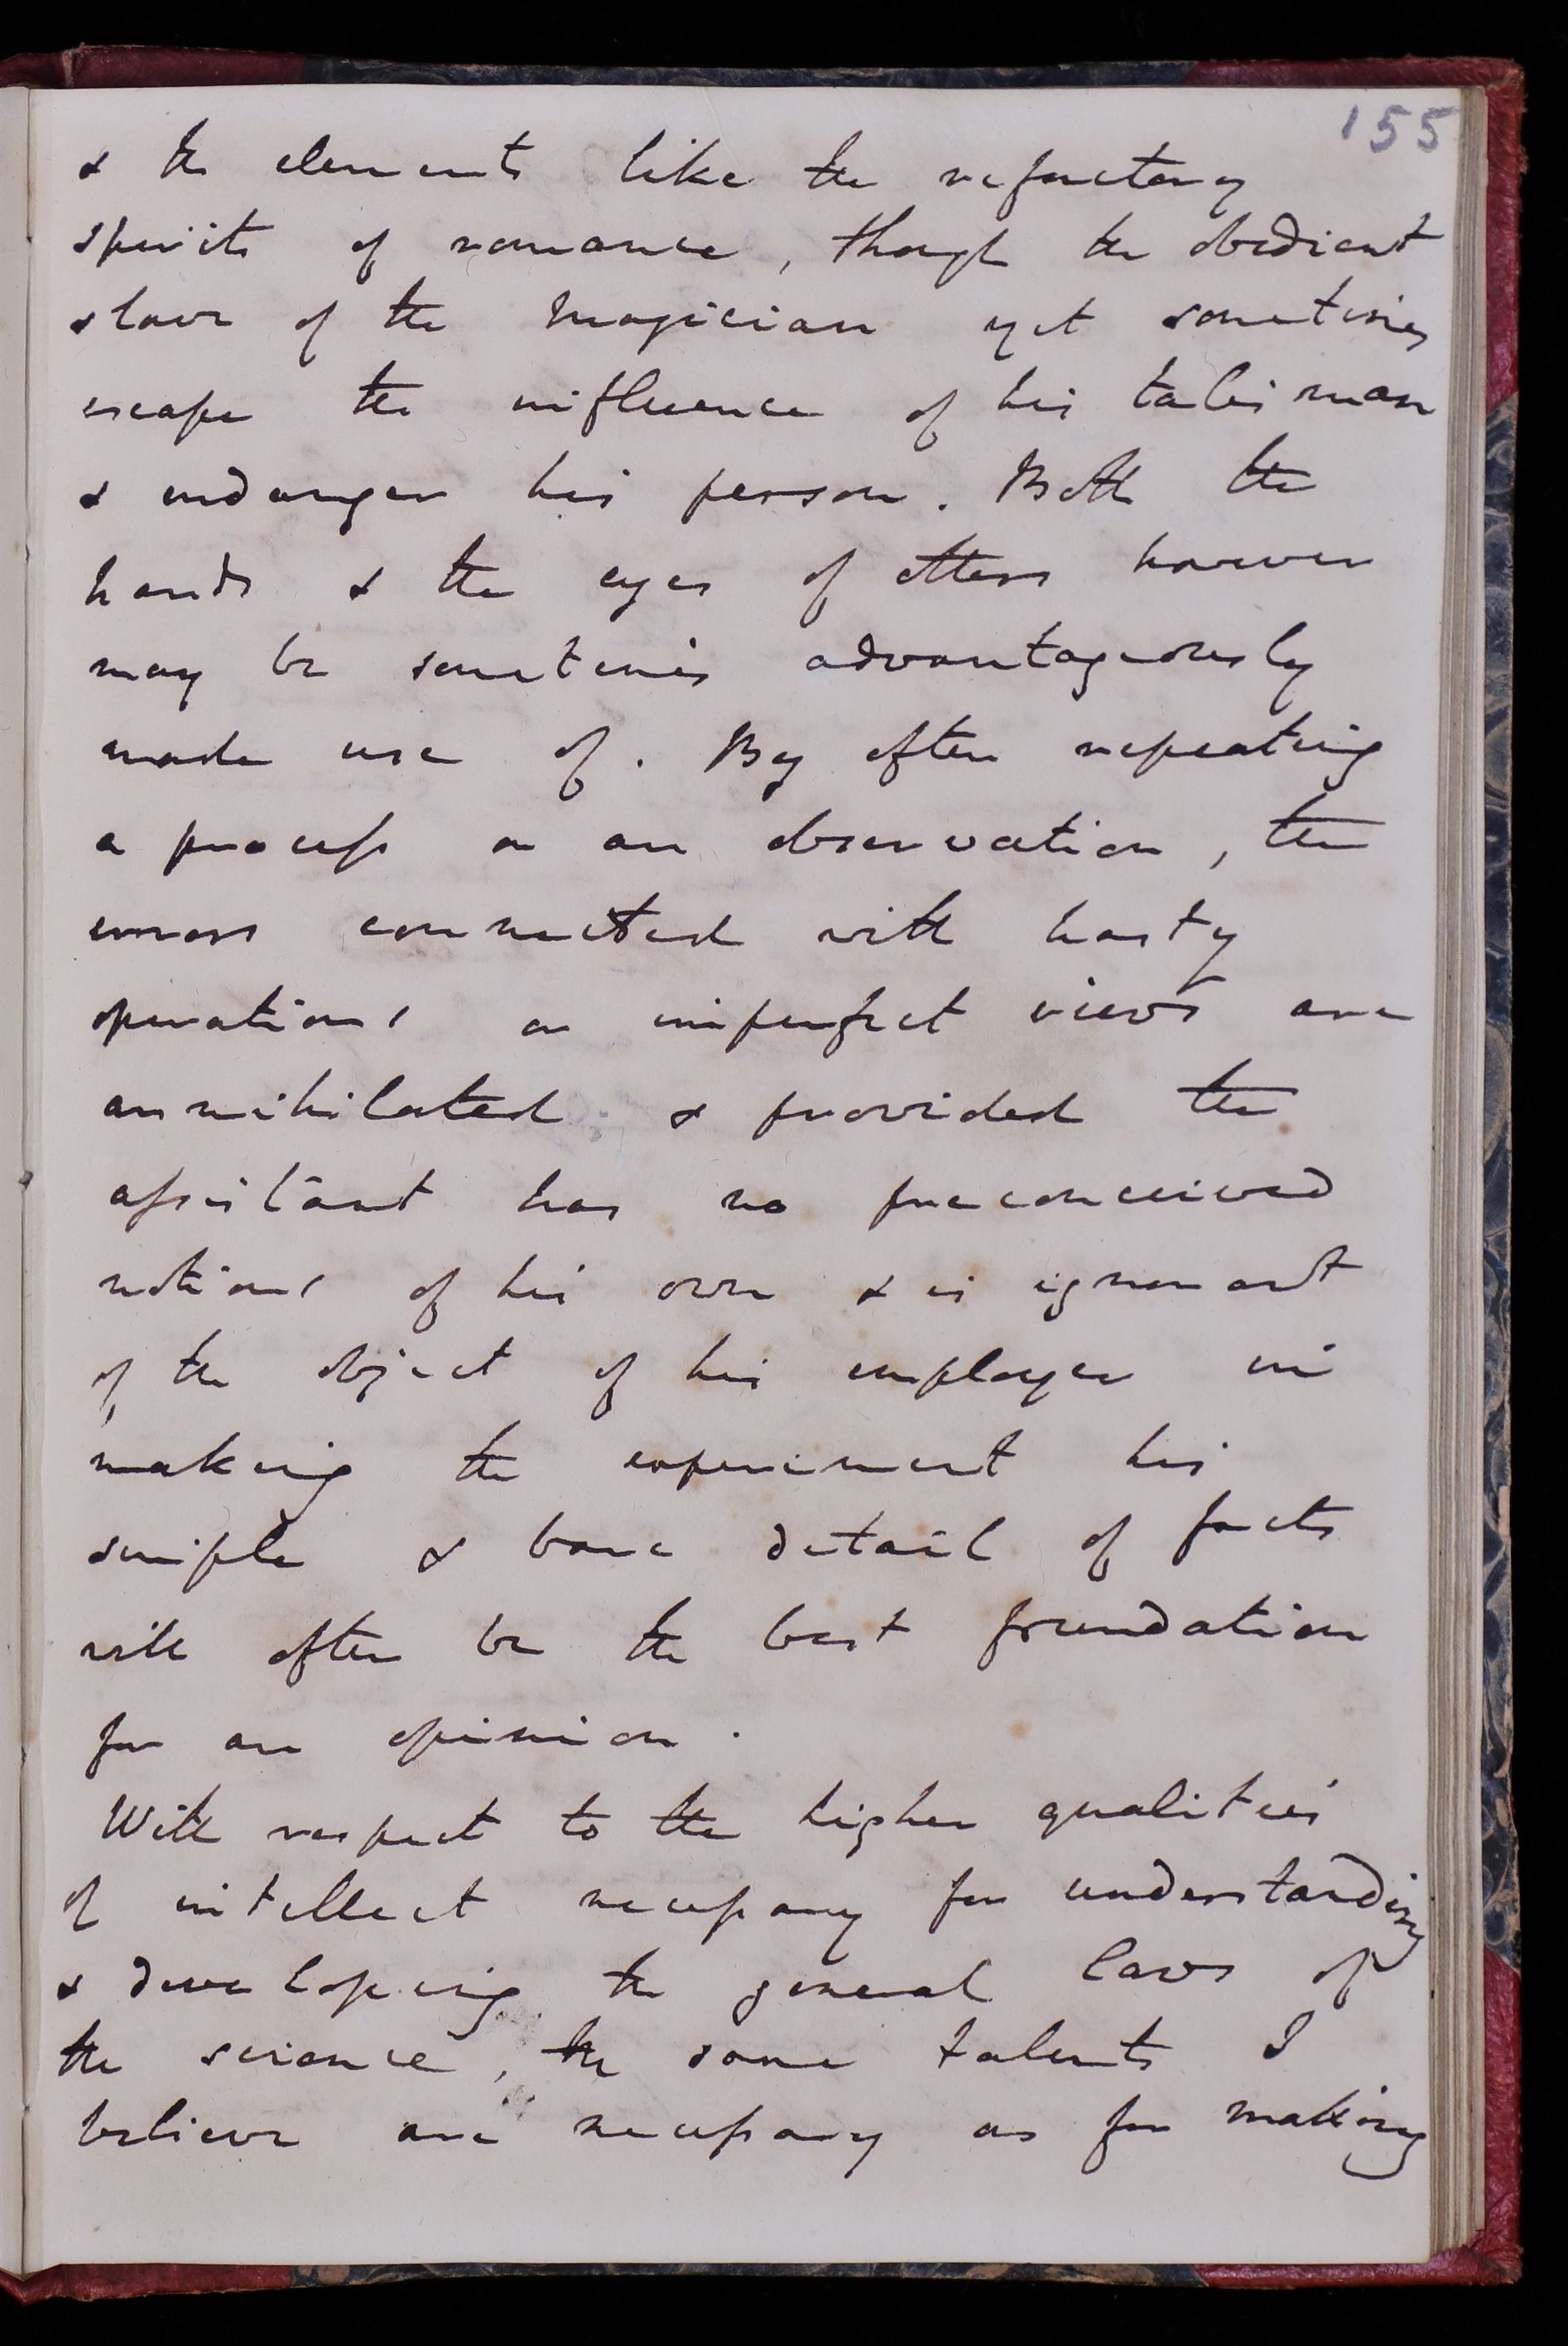 155
& the elements like the refractory
spirits of romance, though the obedient
slave of the Magician yet sometimes
escape the influence of his talisman
& endanger his person. Both the
hands & the eyes of others however
may be sometimes advantageously
made use of. By often repeating
a process or an observation, the
errors connected with hasty
operations or imperfect views are
annihilated & provided the
assistant has no preconceived
notions of his own & is ignorant
of the object of his employer in
making the experiment his
simple & bare detail of facts
will often be the best foundation
for an opinion.
With respect to the higher qualities
of intellect necessary for understanding
& developing the general laws of
the science, the same talents I
believe are necessary as for making